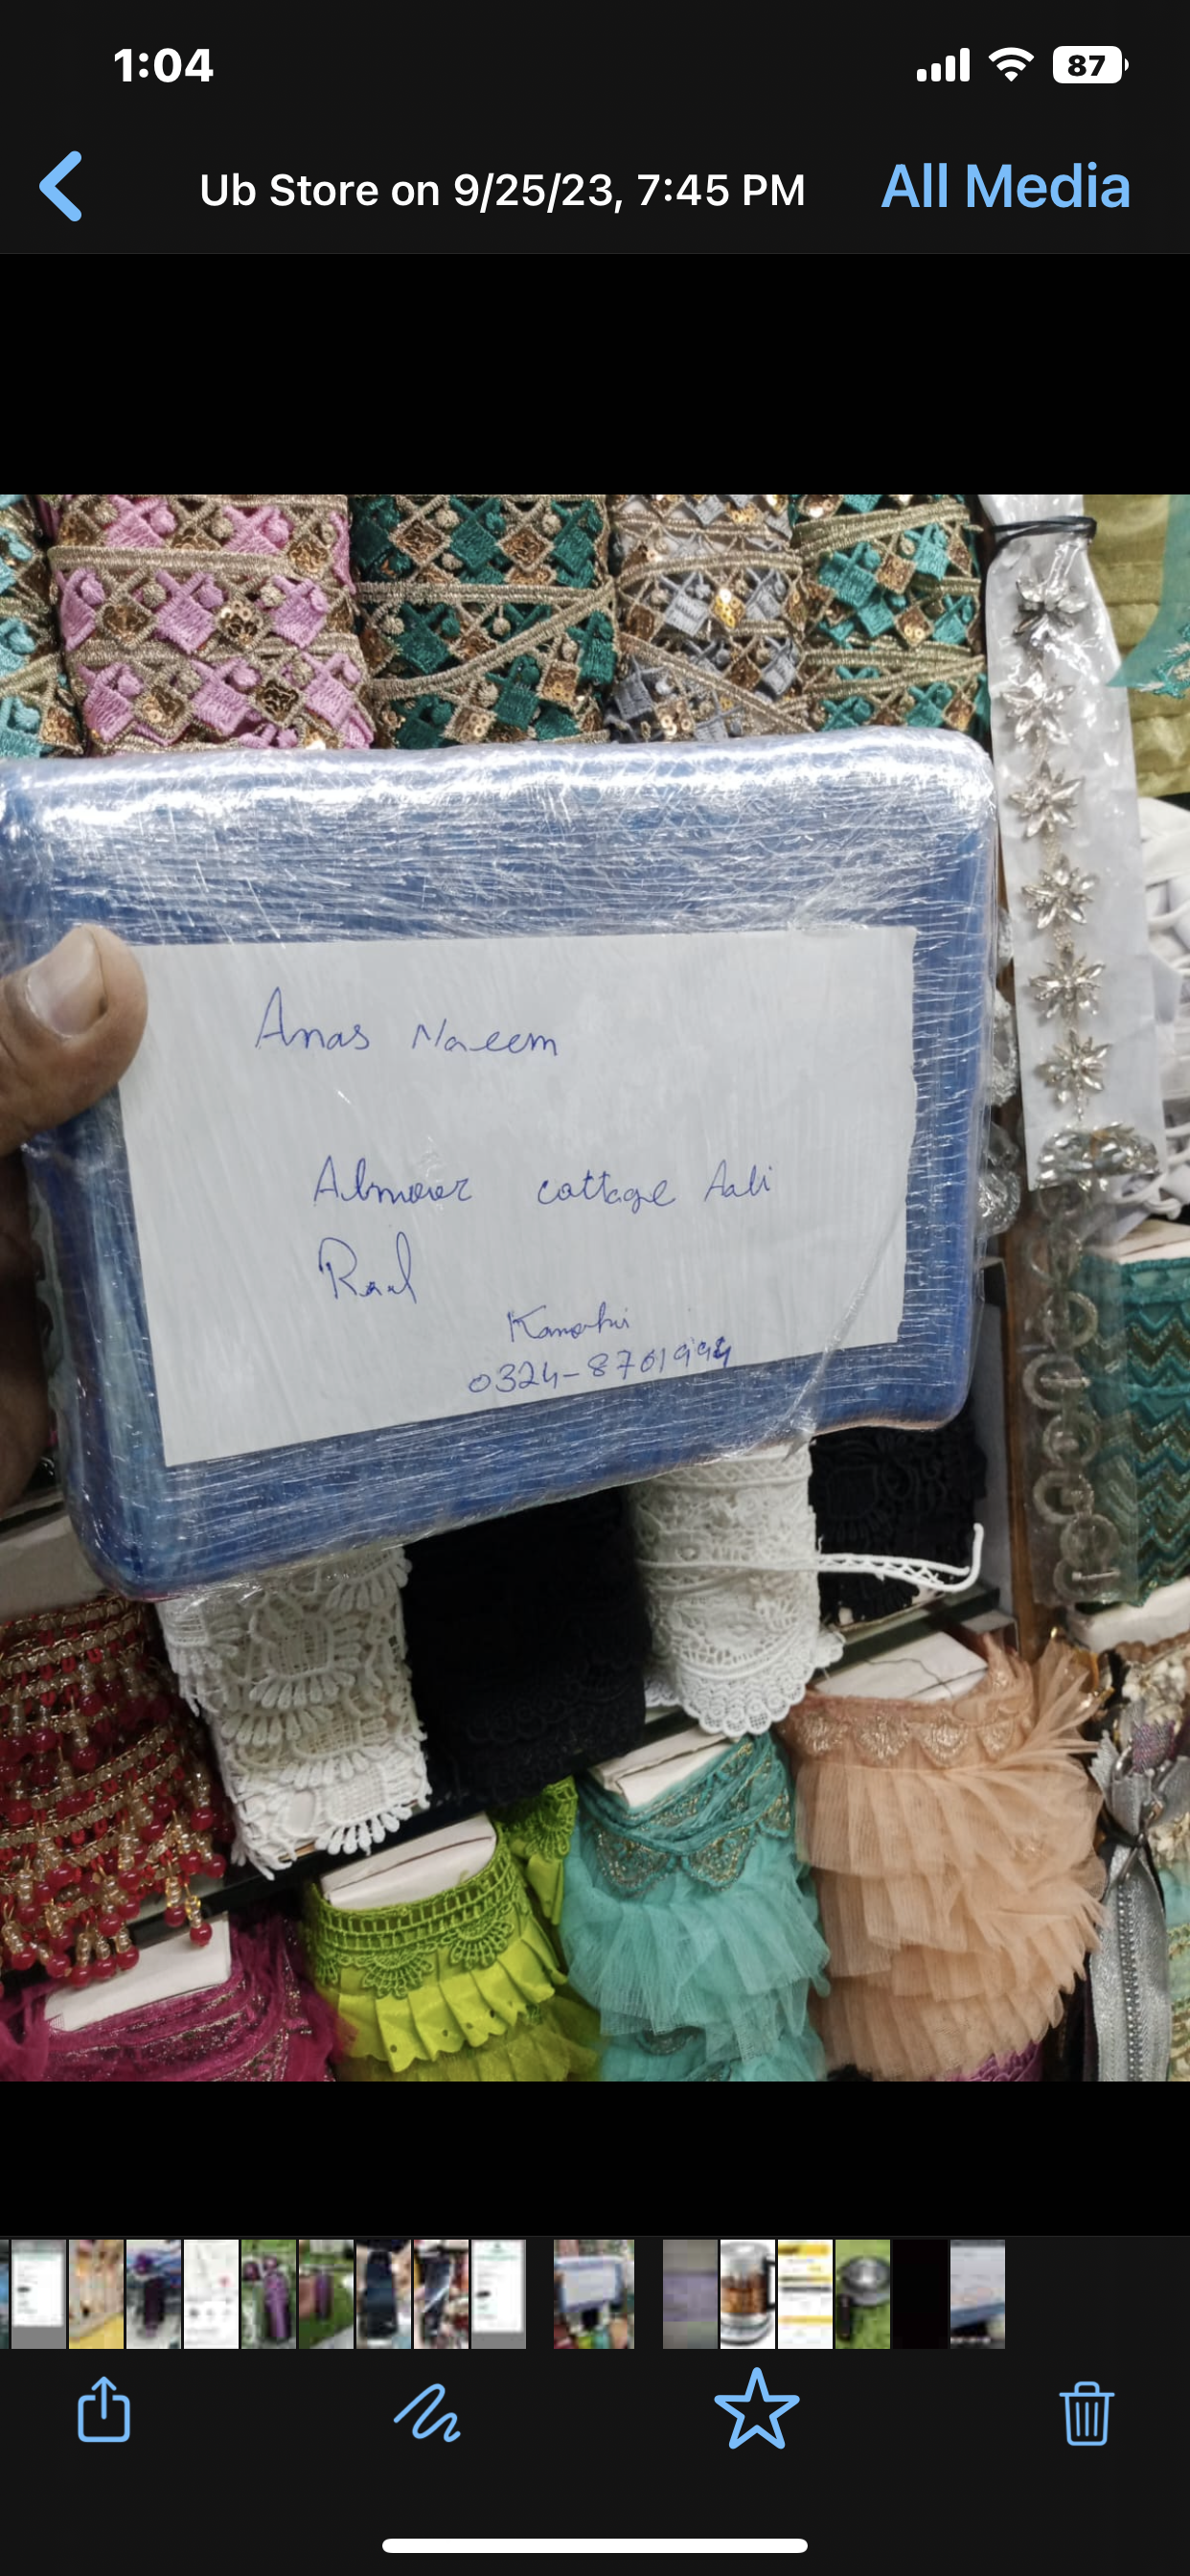 1:04
87
Ub Store on 9/25/23, 7:45 PM
All Media
Anas Naeem
cottage
0324-8701994